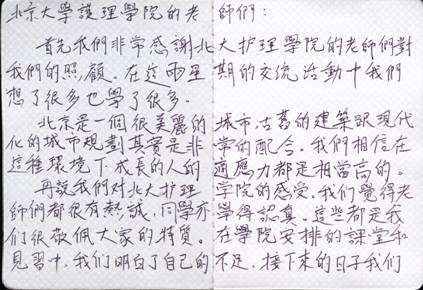 北京大學護理學院的老師們:
首先我們非常感謝北大护理學院的老師們對
我們的照顧.在這兩星期的交流活動中我們
想了很多也學了很多.
北京是一個很美麗的城市.古舊的建築跟現代
化的城市規劃其實是非常的配合.我們相信在
這種環境下成長的人的適應力都是相當高的.
再說我們對北大护理學院的感受.我們覺得老
師們都很有熱誠.同學亦學得認真.這些都是我
們很敬佩大家的特質.在學院安排的課堂和
見習中,我們明白了自己的不足.接下來的日子我們